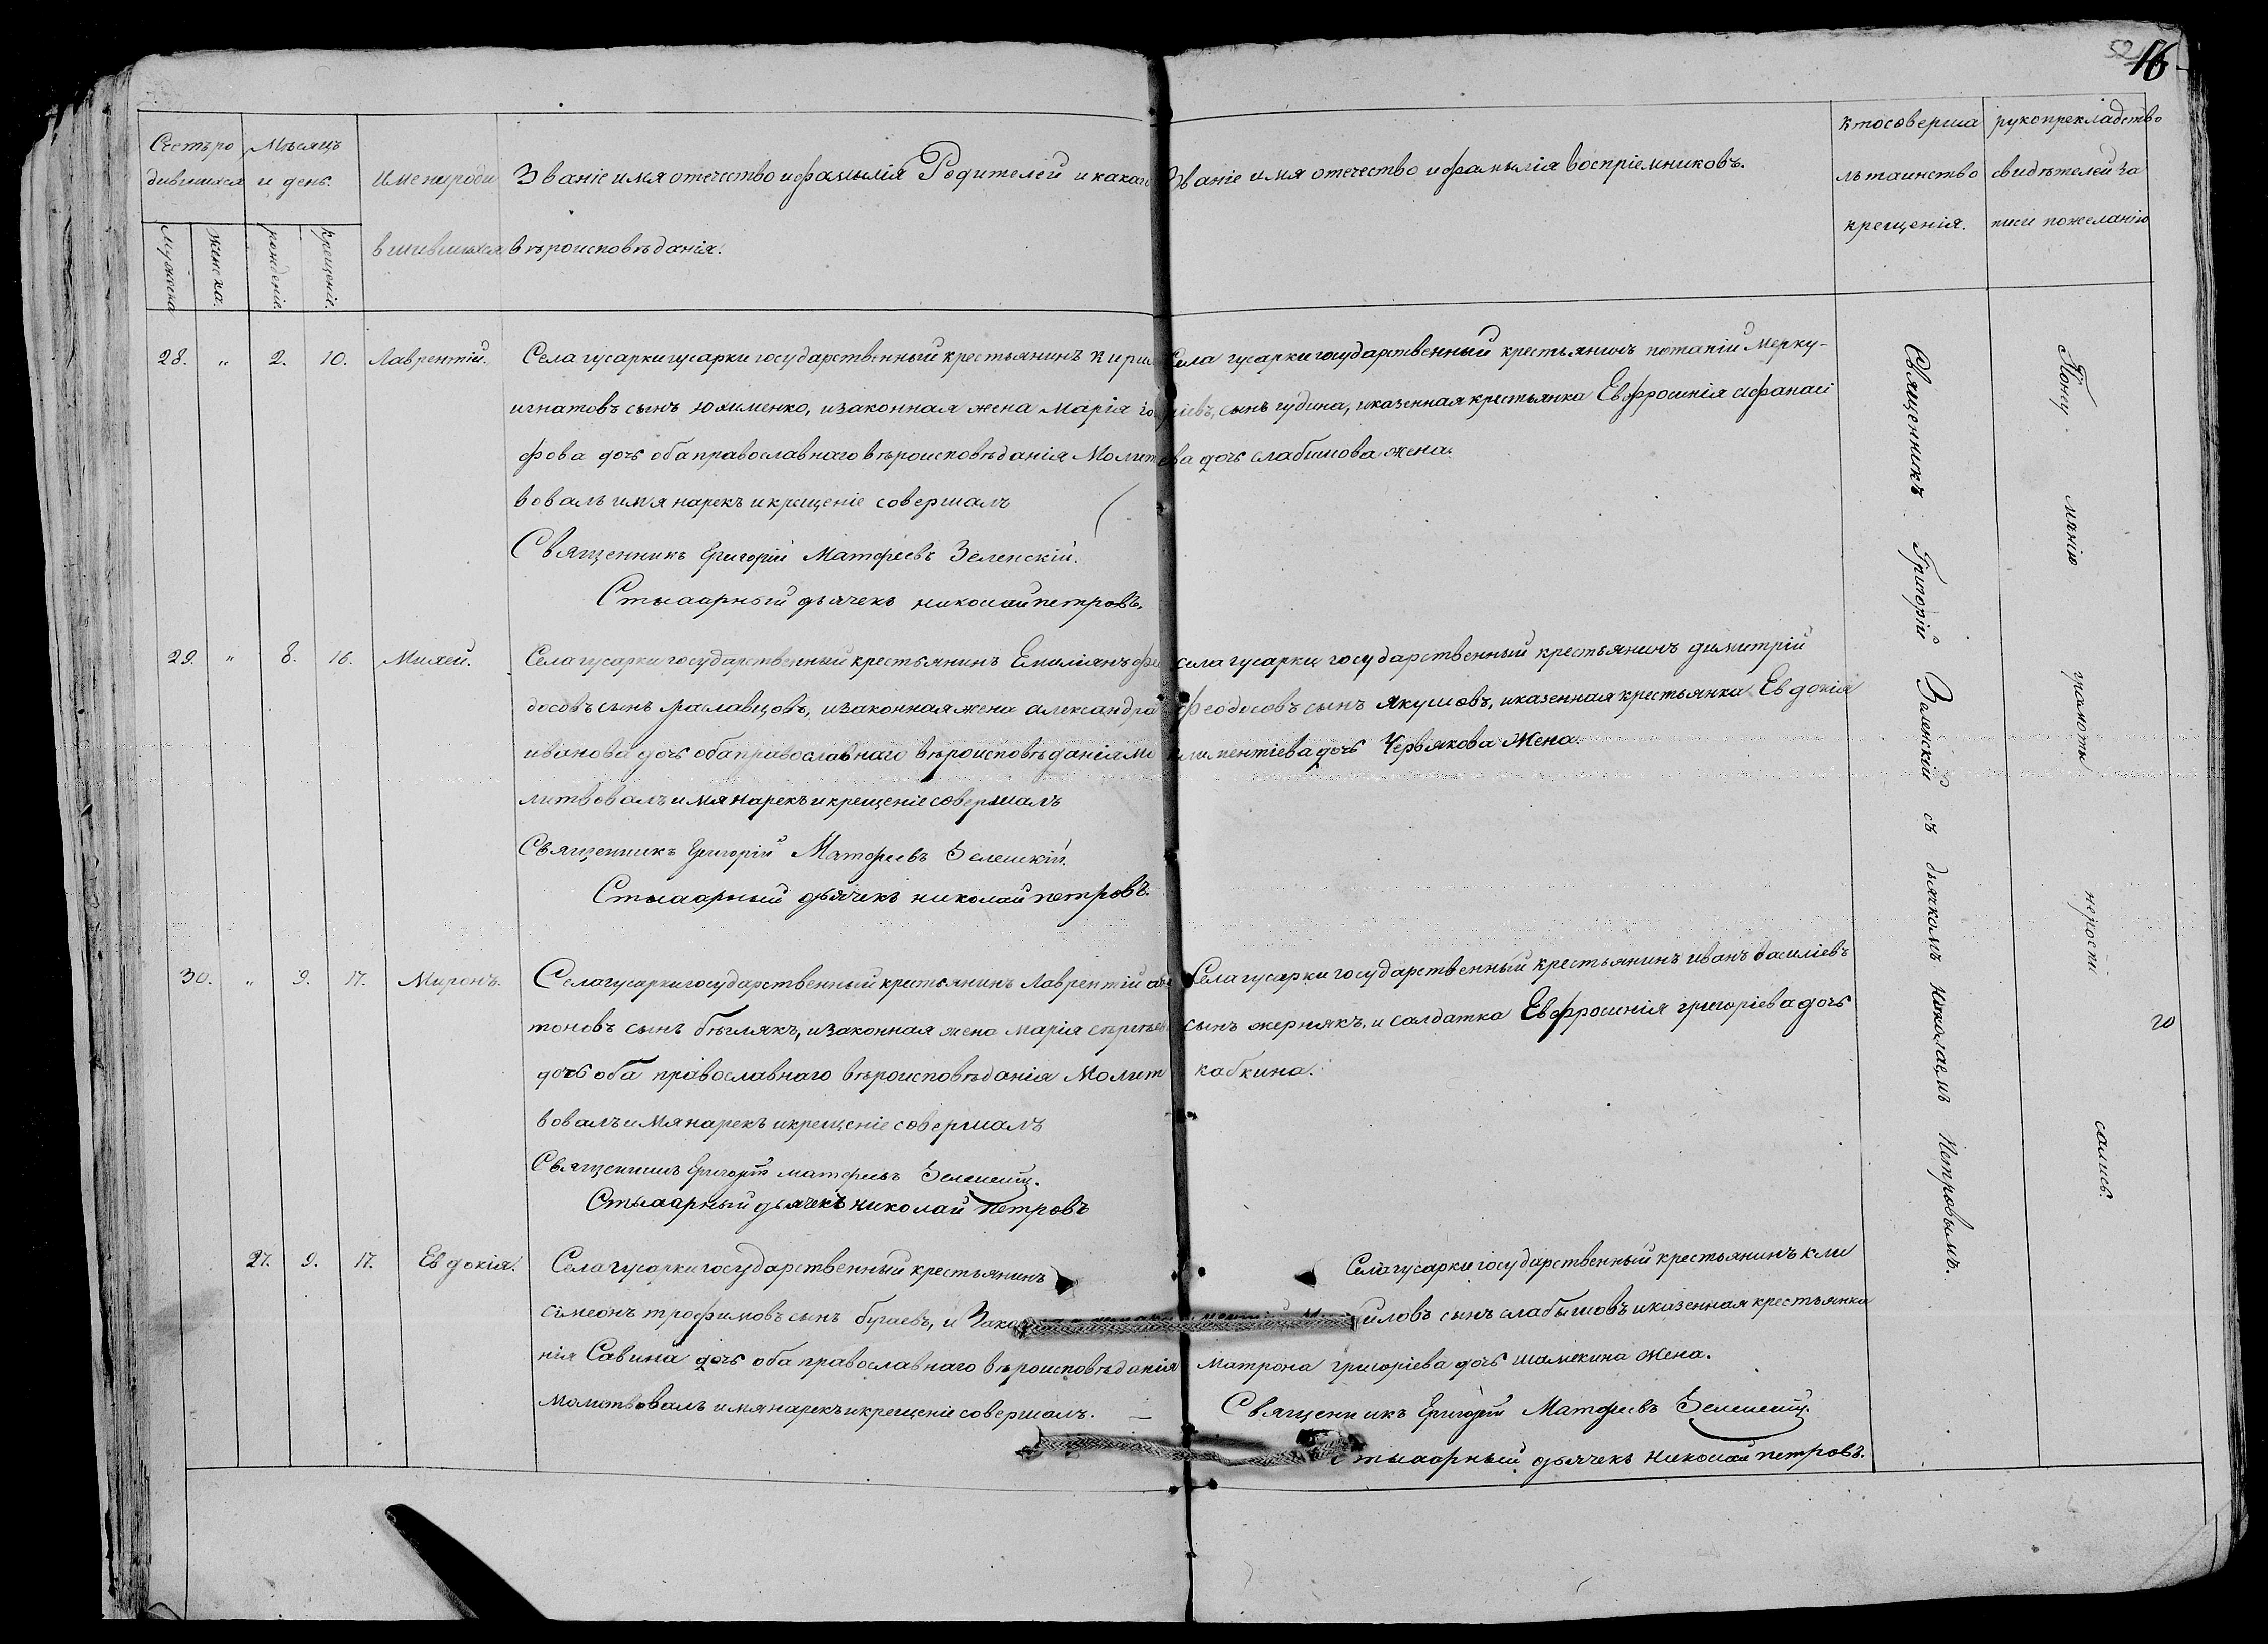 52
16
Счетъ ро Мѣсяцъ
дившихся и день.
Имена роди
вшившихся
Званіе имя отечество и фамылія Родителей и какаго
вѣроисповѣданія.
Званіе имя отечество и фамылія воспріемниковъ.
Кто соверша
лъ таинство
крещенія.
рукопрекладство
свидѣтелей за
писи пожеланію
мужеска
женска.
рожденіе.
крещеніе.
28. „ 2. 10. Лаврентій.
Села гусарки гусарки государственный крестьянинъ Кирил
игнатовъ сынъ юхименко, и законная жена Марія
фова дочь оба православнаго вѣроисповѣданія Молит
вовалъ имя нарекъ и крещеніе совершалъ
Священникъ Григорій Матфѣевъ Зеленскій.
дьячекъ николай петровъ.
Села гусарки государственный крестьянинъ потапій Мерку-
ріевъ, сынъ гудина, и казенная крестьянка Евфросинія афанасі
ева дочь слабишова жена.
29. „ 8. 16. Михей.
Села гусарки государственный крестьянинъ Емиліянъ фе
досовъ сынъ раславцовъ, и законная жена александра
иванова дочь оба православнаго вѣроисповѣданія мо
литвовалъ имя нарекъ и крещеніе совершалъ
Священникъ Григорій Матфѣевъ Зеленскій.
дьячекъ николай петровъ.
села гусарки государственный крестьянинъ димитрій
феодосовъ сынъ якушовъ, и казенная крестьянка Евдокія
климентіева дочь Червякова Жена.
30. „ 9. 17. Миронъ.
Села гусарки государственный крестьянинъ Лаврентій
тоновъ сынъ бѣглякъ, и законная жена Марія сергѣев
дочь оба православнаго вѣроисповѣданія Молит
вовалъ имя нарекъ и крещеніе совершалъ
Священникъ Григорій матфѣевъ Зеленскій.
дьячекъ николай Петровъ
Села гусарки государственный крестьянинъ иванъ василіевъ
сынъ жернякъ, и салдатка Евфросинія григоріева дочь
кабкина.
20
27. 9. 17. Евдокія.
Села гусарки государственный крестьянинъ
симеонъ трофимовъ сынъ бугаевъ, и Зако
нія Савина дочь оба православнаго вѣроисповѣданія
молитвовалъ имя нарекъ и крещеніе совершалъ.
Села гусарки государственный крестьянинъ кли
иловъ сынъ слабышовъ и казенная крестьянка
Матрона григоріева дочь шамекина жена.
Священникъ Григорій Матфѣевъ Зеленскій
дьячекъ николай петровъ.
Священникъ Григорій Зеленскій съ дьячкомъ николаемъ Петровымъ.
Понеу мянію грамоты нероспи сались.